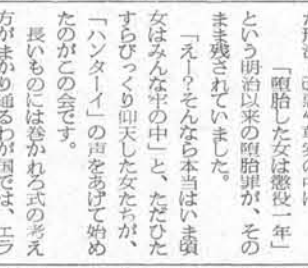 「堕胎した女は懲役一年」
という明治以来の堕胎罪が、その
まま残されていました。
「えー?そんなら本当はいま頃
女はみんな牢の中」と、ただひた
すらびっくり仰天した女たちが、
「ハンターイ」の声をあげて始め
たのがこの会です。
長いものには巻かれろ式の考え
方がまかり通るわが国では、エラ